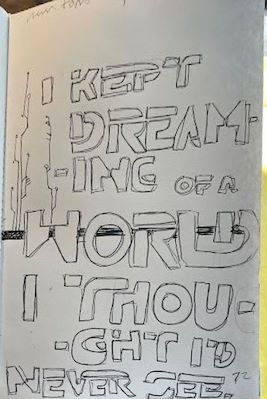 I KEPT
DREAM-
-ING OF A
WORLD
I THOU-
-GHT I'D
NEVER SEE.
72